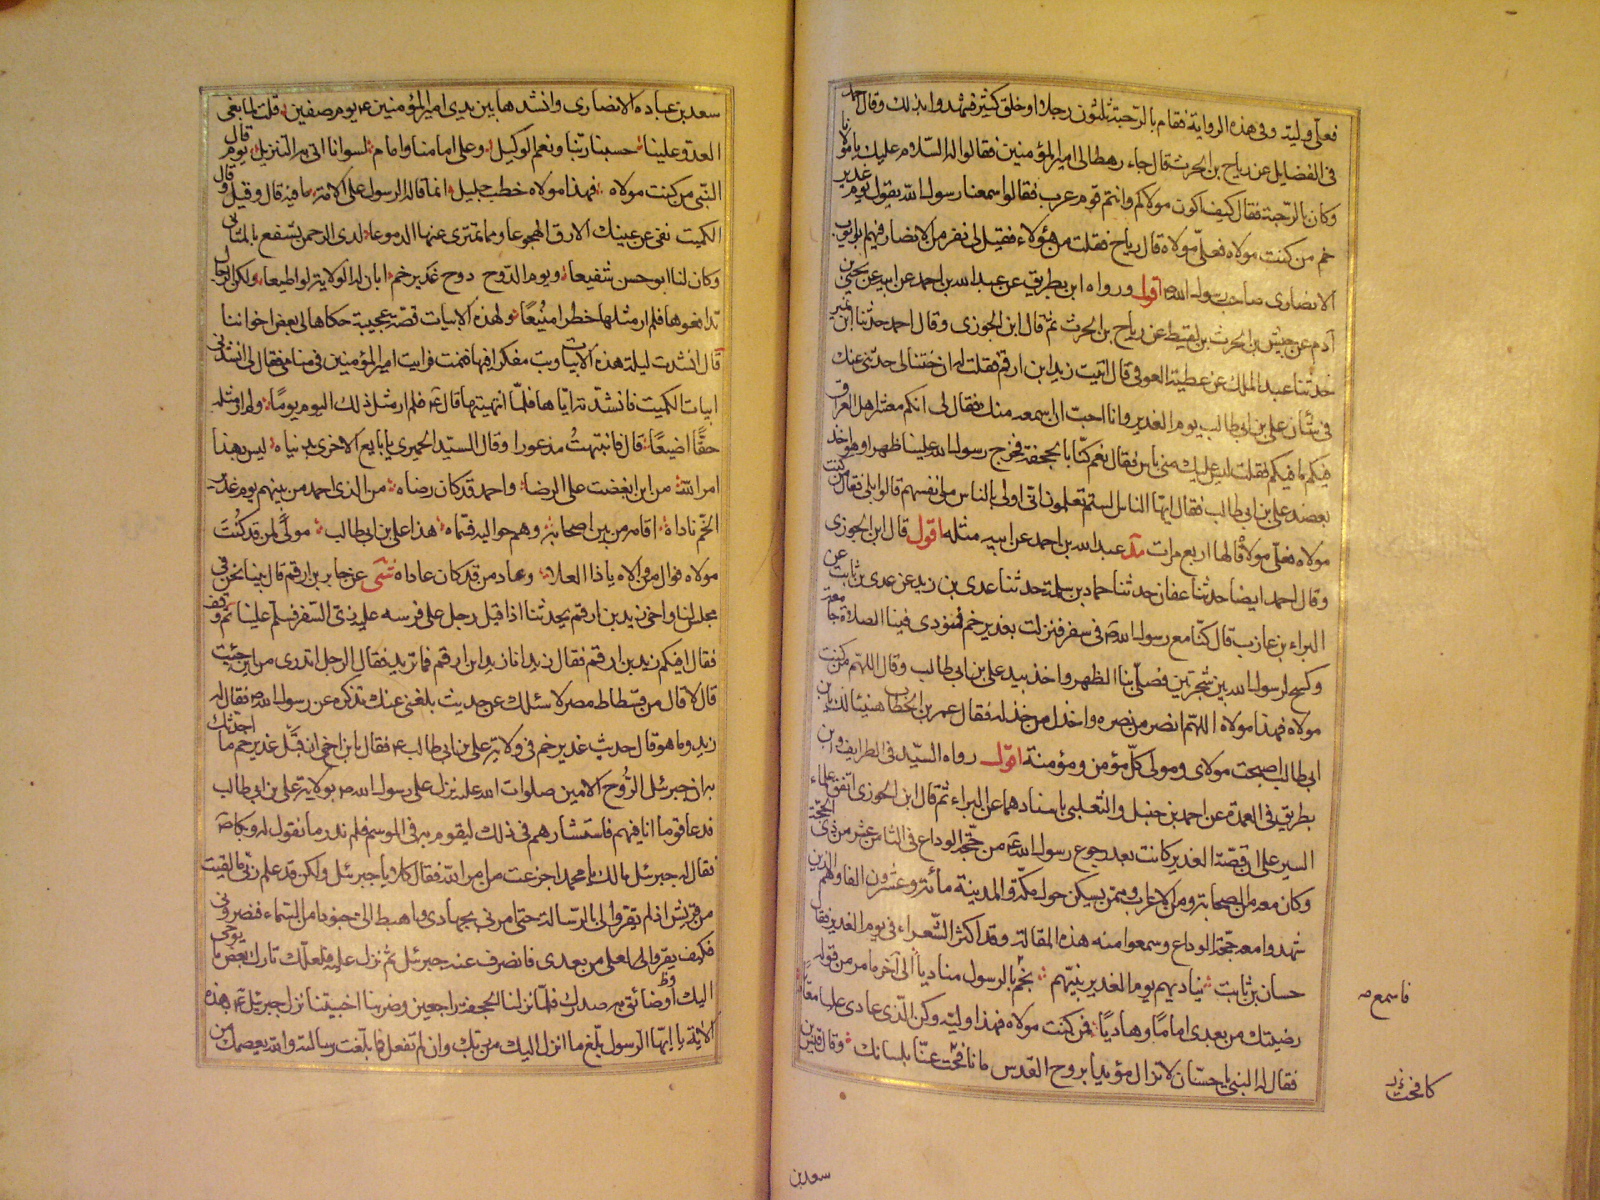 فعلي وليه وفي هذه الرواية فقام بالرحبة ثلثون رجلا او خلق كثير فشهدوا بذلك وقال احمد
في الفضايل عن رياح بن الحرث قال جاء رهط الى امير المؤمنين فقالوا له السلام عليك يا مولانا
وكان بالرحبة فقال كيف اكون مولاكم وانتم قوم عرب فقالوا سمعنا رسول الله يقول يوم غدير
خم من كنت مولاه فعلي مولاه قال رياح فقلت من هؤلاء فقيل لي نفر من الانصار فيهم ابو ايوب
الانصاري صاحب رسول الله اقول ورواه ابن بطريق عن عبد الله بن احمد عن ابيه عن يحيى بن
آدم عن حنش بن الحرث بن لقيط عن رياح بن الحرث ثم قال ابن الجوزي وقال احمد حدثنا ابن نمير
حدثنا عبد الملك عن عطية العوفي قال اتيت زيد ابن ارقم فقلت له ان ختنا لي حدثني عنك
في شأن علي بن ابي طالب يوم الغدير وانا احب ان اسمعه منك فقال لي انكم معشر اهل العراق
فيكم ما فيكم فقلت ليس عليك مني باس فقال نعم كنا بالجحفة فخرج رسول الله علينا ظهرا وهو اخذ
بعضد علي بن ابي طالب فقال ايها الناس الستم تعلمون اني اولى بالناس من انفسهم قالوا بلى فقال من كنت
مولاه فعلي مولاه قالها اربع مرات مد عبد الله بن احمد عن ابيه مثله اقول قال ابن الجوزي
وقال احمد ايضا حدثنا عفان حدثنا حماد بن سلمة حدثنا عدي بن زيد عن عدي بن ثابت عن
البراء بن عازب قال كنا مع رسول الله في سفر فنزلت بغدير خم فنودي فينا الصلاة جامعة
وكسح لرسول الله بين شجرتين فصلى بنا الظهر واخذ بيد علي بن ابي طالب وقال اللهم من كنت
مولاه فهذا مولاه اللهم انصر من نصره واخذل من خذله فقال عمر بن الخطاب هنيئا لك يا بن
ابي طالب اصبحت مولاي ومولى كل مؤمن ومؤمنة اقول رواه السيد في الطرايف وابن
بطريق في العمدة عن احمد بن حنبل والثعلبي باسنادهما عن البراء ثم قال ابن الجوزي اتفق علماء
السير على ان قصة الغدير كانت بعد رجوع رسول الله من حجة الوداع في الثامن عشر من ذي الحجة
وكان معه من الصحابة ومن الاعراب وممن يسكن حول مكة والمدينة مائة وعشرون الفا وهم الذين
شهدوا معه حجة الوداع وسمعوا منه هذه المقالة وقد اكثر الشعراء في يوم الغدير فقال
حسان بن ثابت يناديهم يوم الغدير نبيهم بخم بالرسول مناديا الى آخر ما مر من قوله
رضيتك من بعدي اماما وهاديا فمن كنت مولاه فهذا وليه وكن للذي عادى عليا معاديا
فقال له النبي يا حسان لا تزال مؤيدا بروح القدس ما نافحت عنا بلسانك وقال قيس بن
فاسمع
كافحت
سعد بن
سعد بن عباده الانصاري وانشدها بين يدي امير المؤمنين يوم صفين قلت لما بغى
العدو علينا حسبنا ربنا ونعم الوكيل وعلي امامنا وامام لسوانا اتى به التنزيل يوم قال
النبي من كنت مولاه فهذا مولاه خطب جليل انما قاله الرسول على الامة ما فيه قال وقيل وقال
الكميت نفى عن عينك الارق الهجوعا ومما تمترى عنها الدموعا لدى الرحمن يشفع بالمثاني
وكان لنا ابو حسن شفيعا ويوم الدوح دوح غدير خم ابان له الولاية لو اطيعا ولكن الرجال
تدافعوها فلم ار مثلها خطرا منيعا ولهذه الابيات قصة عجيبة حكاها لي بعض اخواننا
قال انشدت ليلة هذه الابيات وبت مفكرا فيها فنمت فرايت امير المؤمنين في منامي فقال لي انشدني
ابيات الكميت فانشدته اياها فلما انهيتها قال فلم ار مثل ذلك اليوم يوما ولم ار مثله
حقا اضيعا قال فانتبهت مذعورا وقال السيد الحميري يا بايع الاخرى بدنياه ليس بهذا
امر الله من اين ابغضت علي الرضا واحمد قد كان رضاه من الذي احمد من بينهم يوم غدير
الخم ناداه اقامه من بين اصحابه وهم حواليه فسماه هذا علي بن ابي طالب مولى لمن قد كنت
مولاه فوال من والاه يا ذا العلا وعاد من قد كان عاداه شى عن جابر بن ارقم قال بينا نحن في
مجلس لنا واخي زيد بن ارقم يحدثنا اذا قبل رجل على فرسه عليه زي السفر فسلم علينا ثم وقف
فقال افيكم زيد بن ارقم فقال زيد انا زيد ابن ارقم فما تريد فقال الرجل اتدري من اين جئت
قال لا قال من فسطاط مصر لاسئلك عن حديث بلغني عنك تذكره عن رسول الله فقال له
زيد وما هو قال حديث غدير خم في ولاية علي بن ابي طالب فقال يا بن اخي ان قبل غدير خم ما احدثك
به ان جبرئيل الروح الامين صلوات الله عليه نزل على رسول الله بولاية علي بن ابي طالب
فدعا قوما انا فيهم فاستشارهم في ذلك ليقوم به في الموسم فلم ندر ما نقول له وبكا
فقال له جبرئيل مالك يا محمد اجزعت من امر الله فقال كلا يا جبرئيل ولكن قد علم ربي ما لقيت
من قريش اذ لم يقروا لي بالرسالة حتى امرني بجهادي واهبط الي جنودا من السماء فنصروني
فكيف يقروا لي لعلي من بعدي فانصرف عنه جبرئيل ثم نزل عليه فلعلك تارك بعض ما يوحى
اليك وضائق به صدرك فلما نزلنا الجحفة راجعين وضربنا اخبيتنا نزل جبرئيل بهذه
الاية يا ايها الرسول بلغ ما انزل اليك من ربك وان لم تفعل فما بلغت رسالته والله يعصمك من